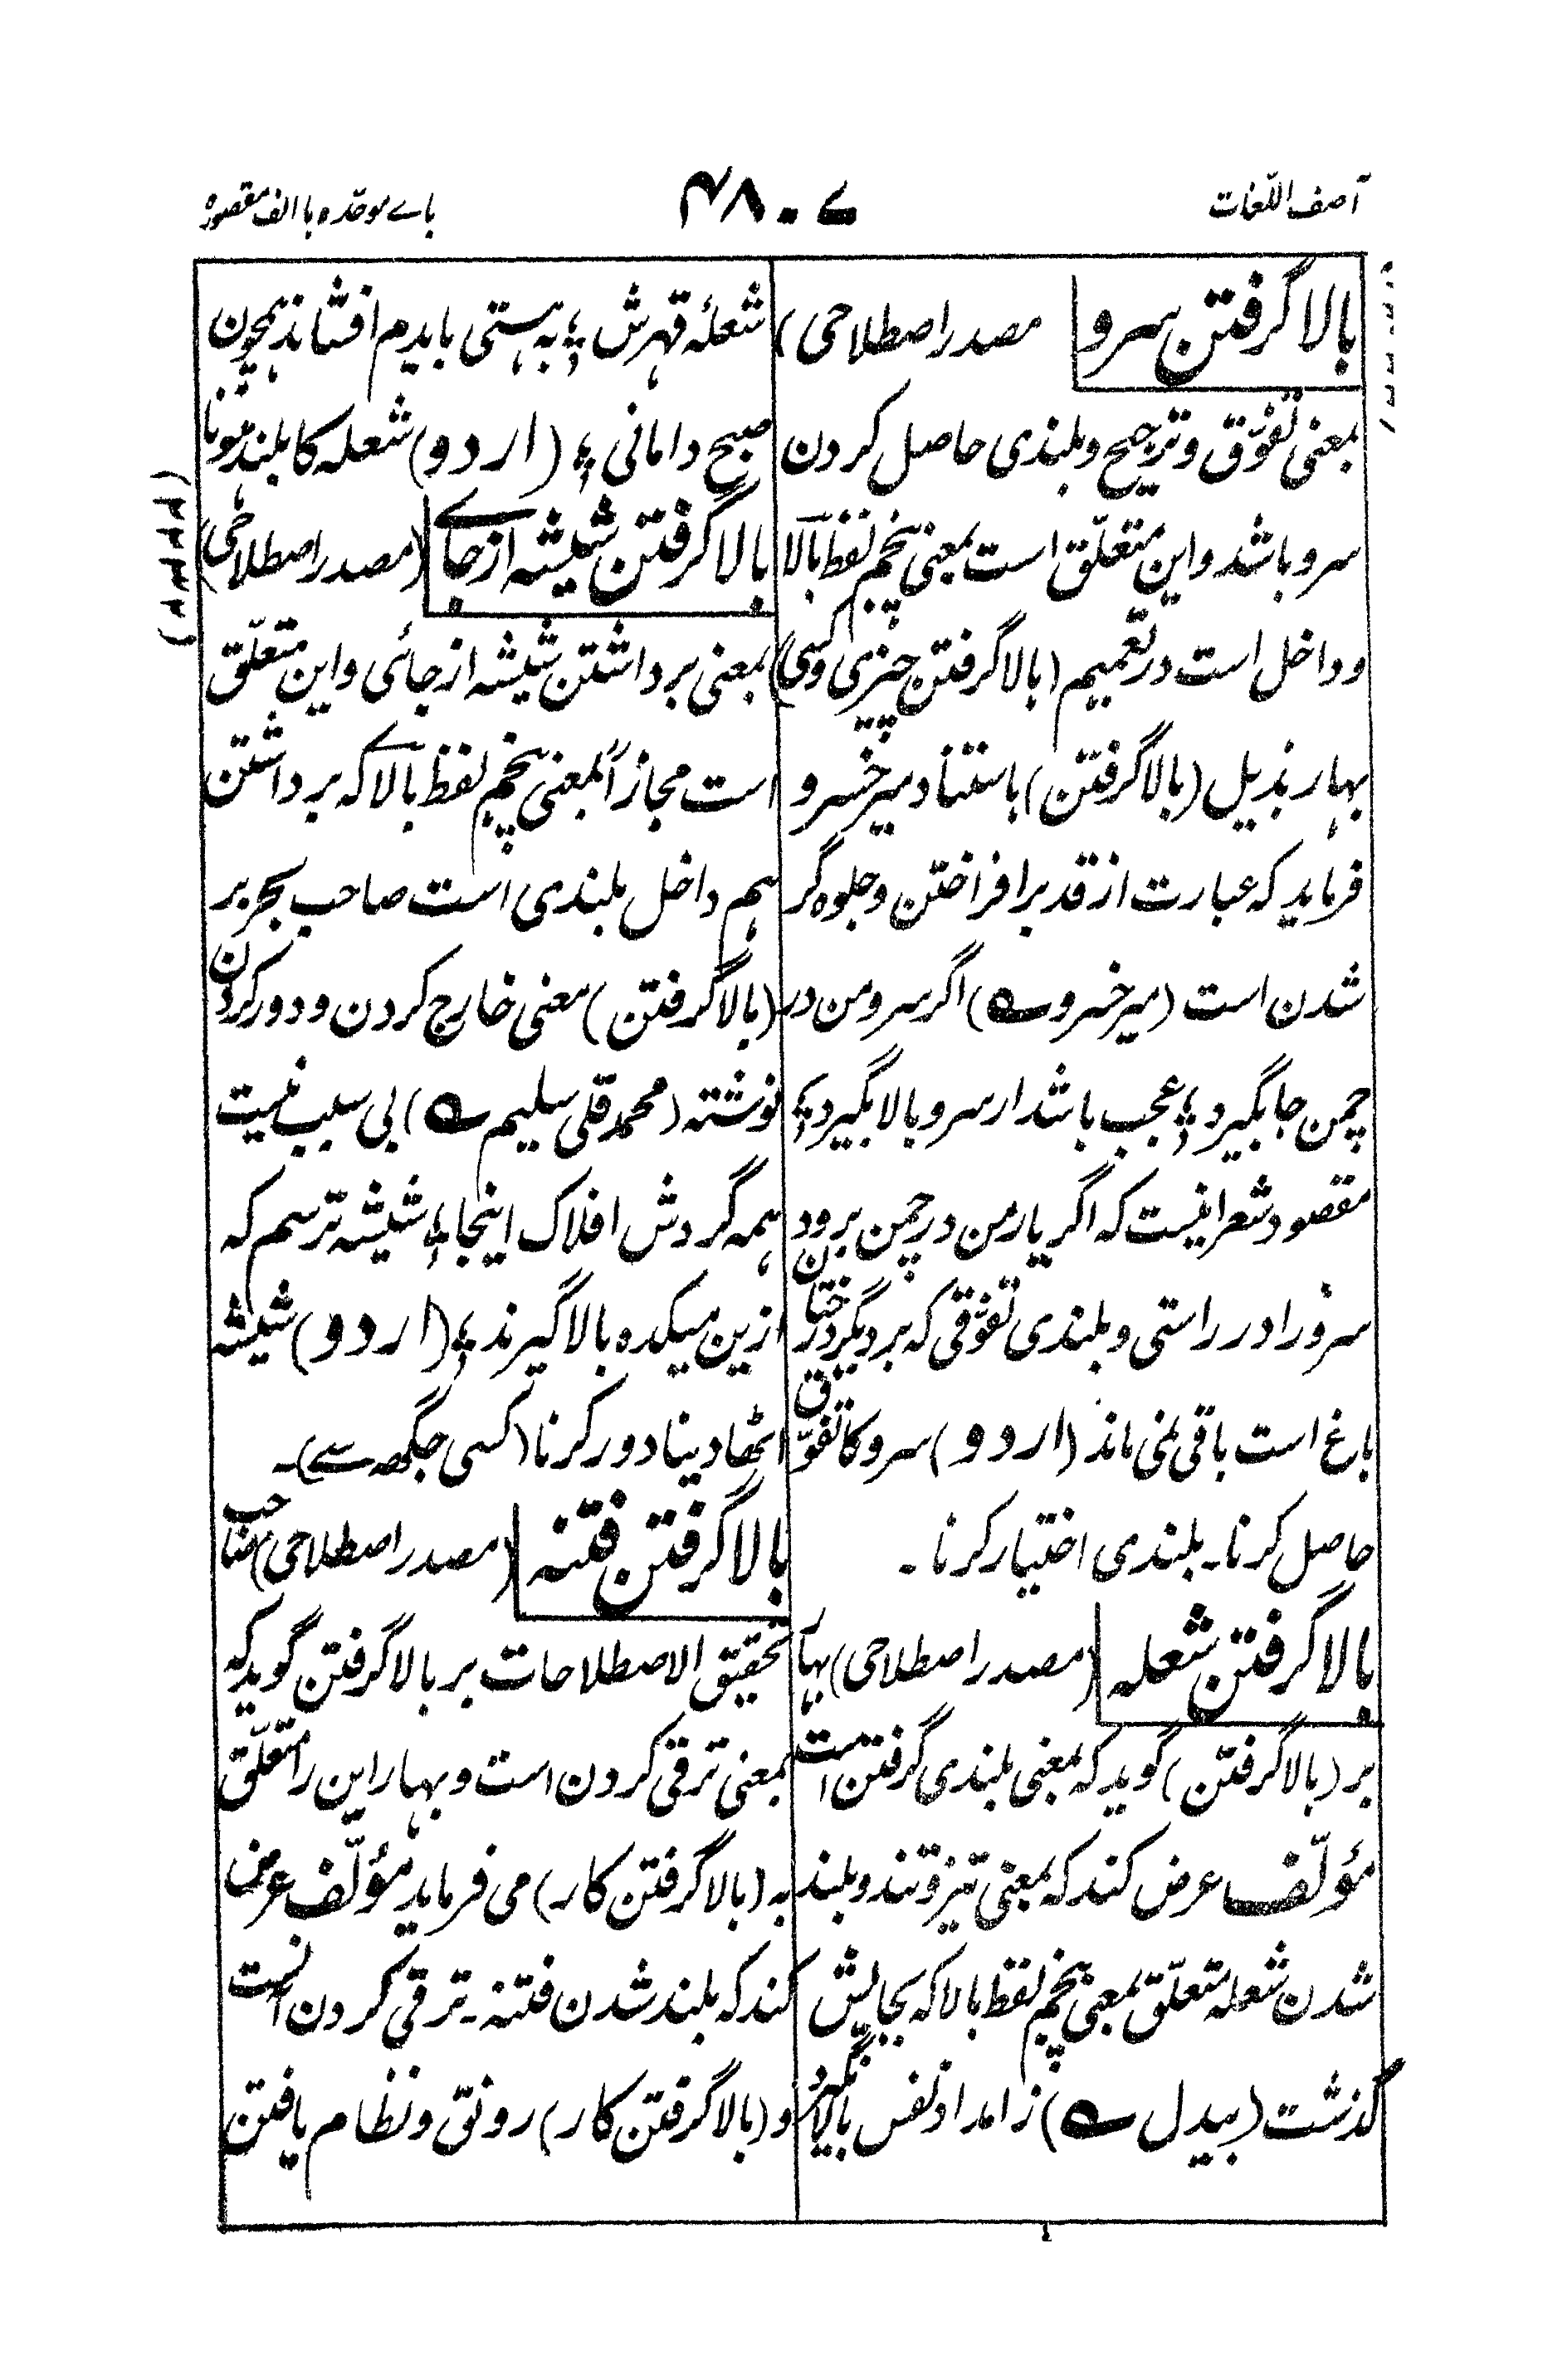 آصف اللّغات
۴۸۰۷
باے موحّدہ با الف مقصورہ
بالا گرفتن سرو مصدر اصطلاحی)
بمعنی تفوّق و ترجیح و بلندی حاصل کردن
سرو باشد و این متعلّق است بمعنی پنجم لفظ بالا
و داخل است در تعمیم (بالا گرفتن چیزی و کسی)
بہار بذیل (بالا گرفتن) باستناد میر خسرو
فرماید کہ عبارت از قد بر افراختن و جلوہ گر
شدن است (میر خسرو ؎) اگر سرو من در
چمن جا بگیرد ؛ عجب باشد ار سرو بالا بگیرد ؛
مقصود شعر اینست کہ اگر یار من در چمن برود
سرو را در راستی و بلندی تفوّقی کہ بر دیگر درختان
باغ است باقی نمی ماند (اردو) سرو کا تفوّق
حاصل کرنا۔ بلندی اختیار کرنا۔
بالا گرفتن شعلہ (مصدر اصطلاحی) بہار
بر (بالا گرفتن) گوید کہ بمعنی بلندی گرفتن است
مؤلّف عرض کند کہ بمعنی تیز و تند و بلند
شدن شعلہ متعلّق بمعنی پنجم لفظ بالا کہ بجایش
گذشت (بیدل ؎) ز امداد نفس بالا نگیرد
شعلۂ قہرش ؛ بہ ہستی بایدم افشاند ہمچون
صبح دامانی ؛ (اردو) شعلہ کا بلند ہونا
بالا گرفتن شیشہ از جاے (مصدر اصطلاحی)
بمعنی برداشتن شیشہ از جائی و این متعلّق
است مجازاً بمعنی پنجم لفظ بالا کہ برداشتن
ہم داخل بلندی است صاحب بحر بر
(بالا گرفتن) معنی خارج کردن و دور کردن
نوشتہ (محمد قلی سلیم ؎) بی سبب نیست
ہمہ گردش افلاک اینجا ؛ شیشہ ترسم کہ
ازین میکدہ بالا گیرند ؛ (اردو) شیشہ
اٹھا دینا دور کرنا (کسی جگھ سے)۔
بالا گرفتن فتنہ (مصدر اصطلاحی) صاحب
تحقیق الاصطلاحات بر بالا گرفتن گوید کہ
بمعنی ترقی کردن است و بہار این را متعلّق
بہ (بالا گرفتن کار) می فرماید مؤلّف عرض
کند کہ بلند شدن فتنہ۔ ترقی کردن آنست
و (بالا گرفتن کار) رونق و نظام یافتن